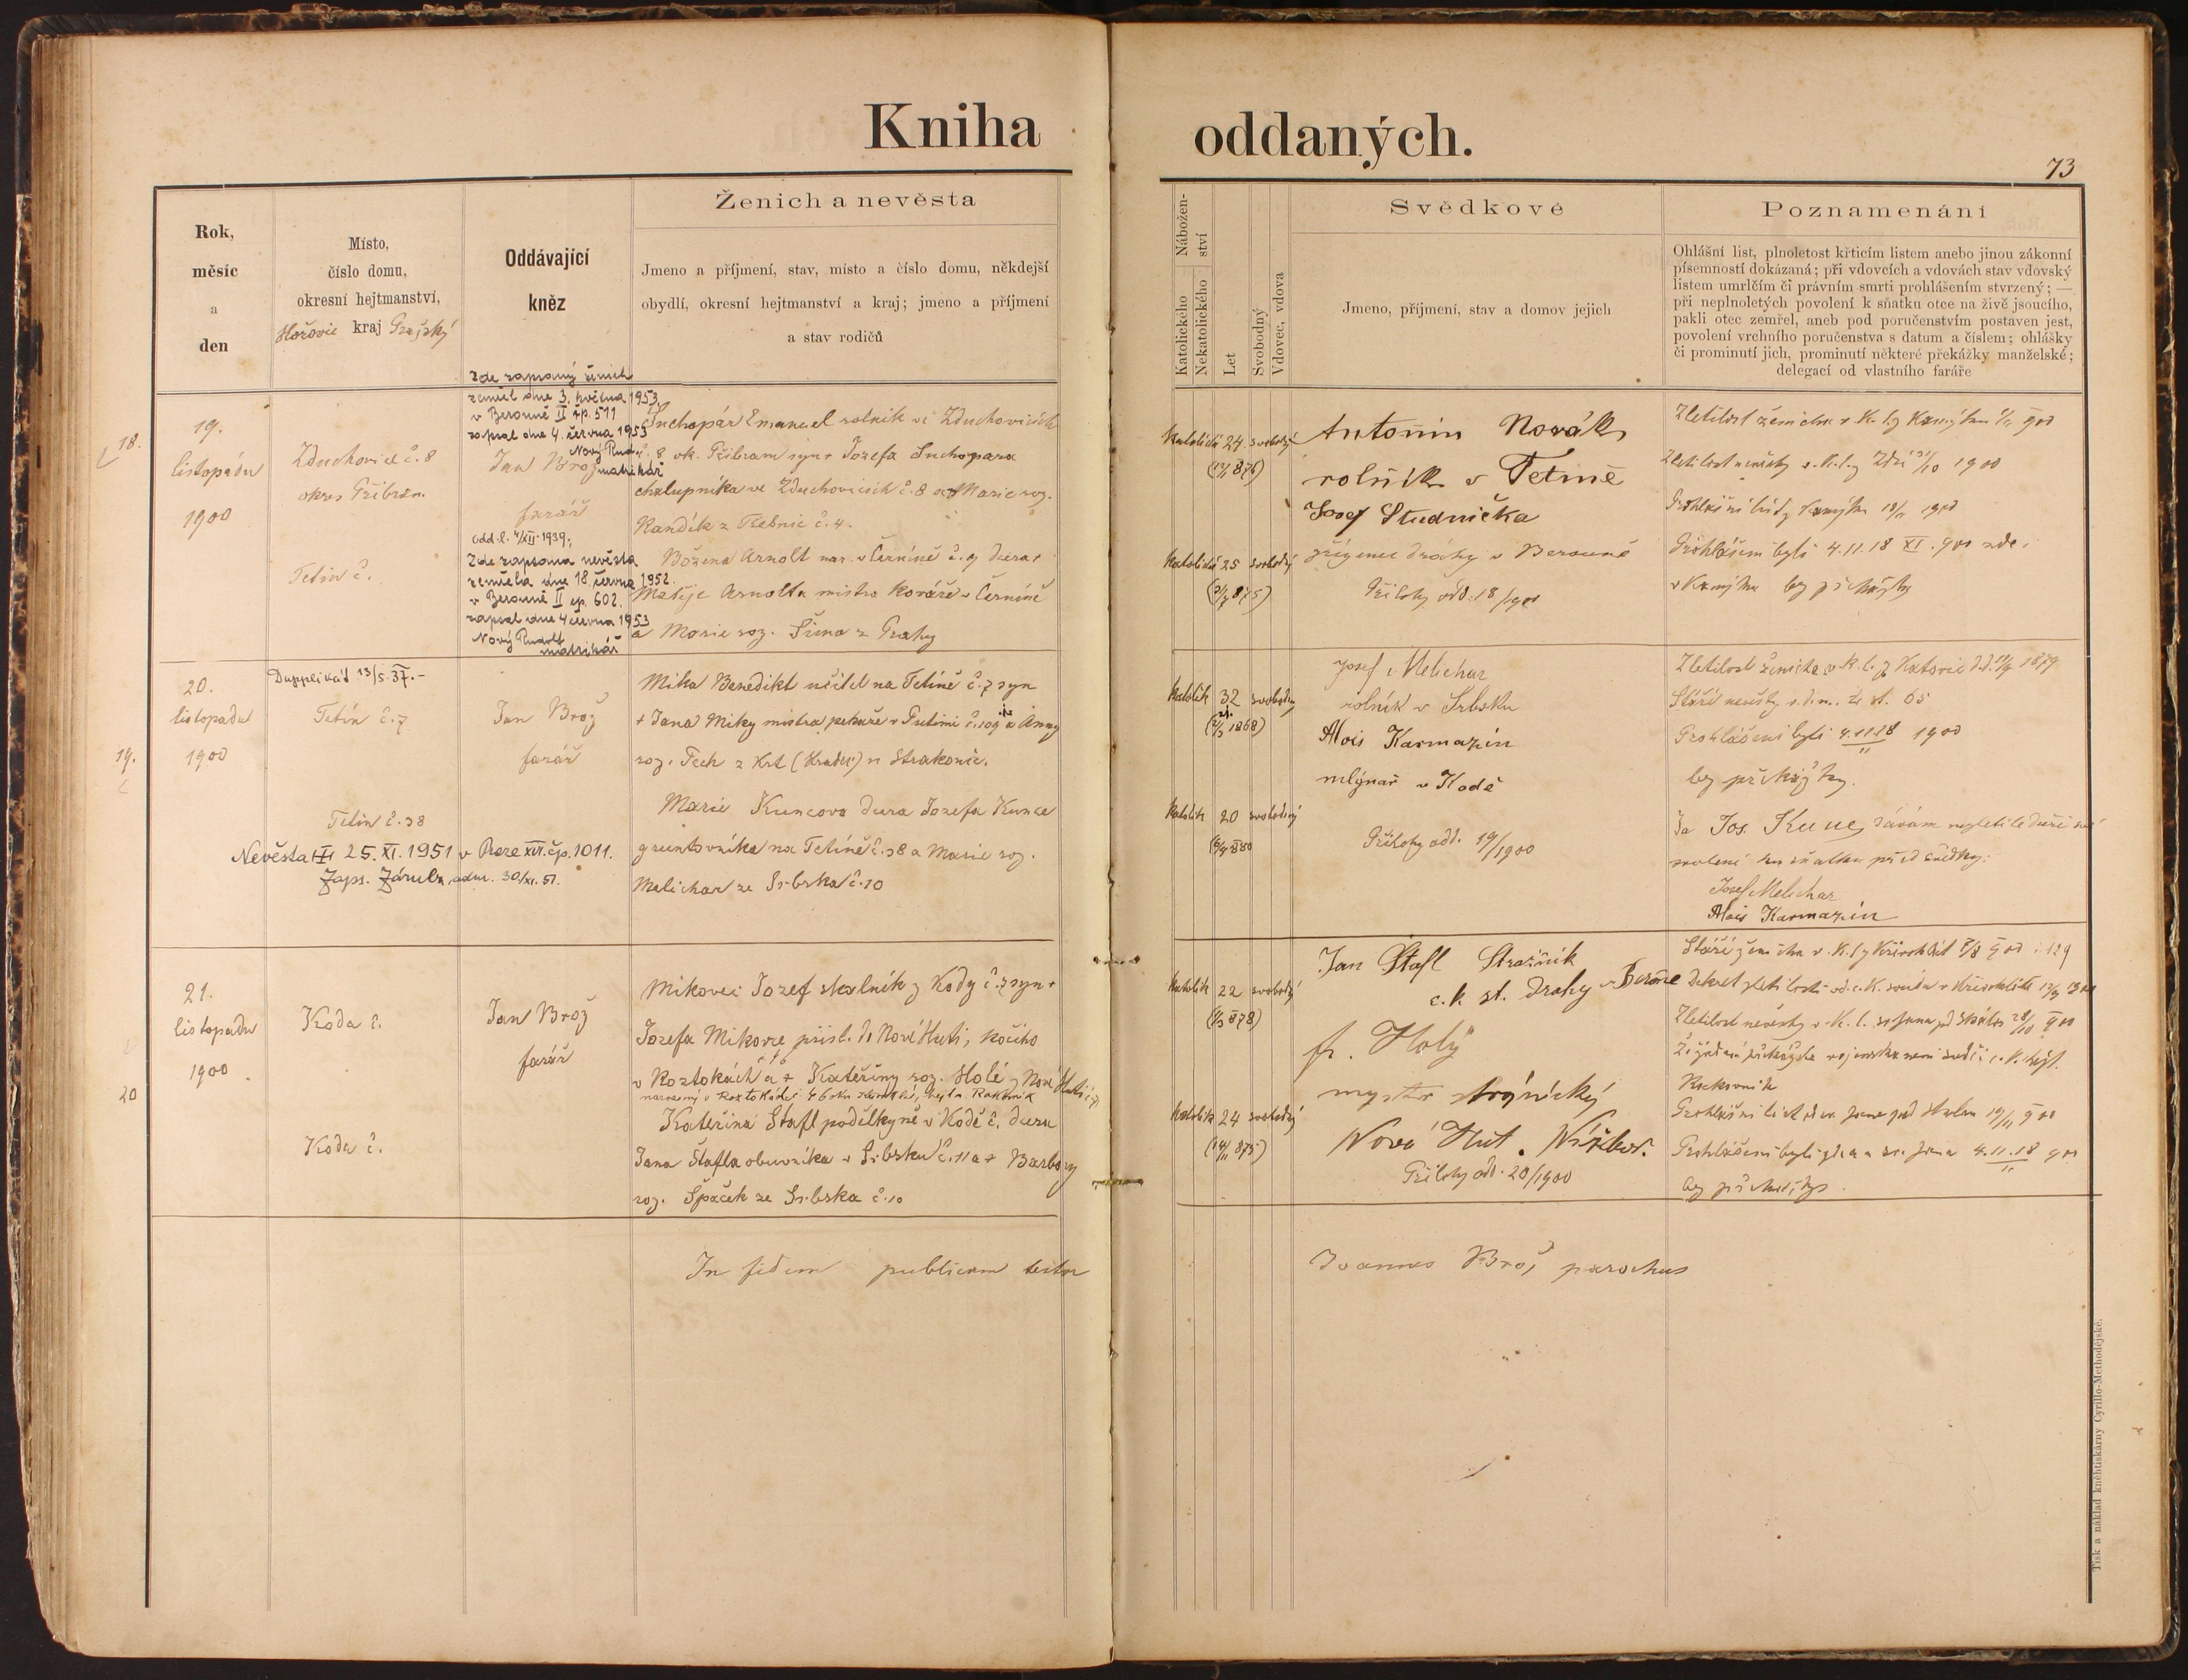 Kniha oddaných.
73
Rok,
měsíc
a
den
Místo,
číslo domu,
okresní hejtmanství,
Hořovic kraj Pražský
Oddávající
kněz
Ženich a nevěsta
Jmeno a příjmení, stav, místo a číslo domu, někdejší
obydlí, okresní hejtmanství a kraj; jmeno a příjmení
a stav rodičů
Nábožen-
ství
Katolického
Nekatolického
Let
Svobodný
Vdovec, vdova
Svědkové
Jmeno, příjmení, stav a domov jejich
Poznamenání
Ohlášní list, plnoletost křticím listem anebo jinou zákonní
písemností dokázaná; při vdovcích a vdovách stav vdovský
listem umrlčím či právním smrti prohlášením stvrzený; —
při neplnoletých povolení k sňatku otce na živě jsoucího,
pakli otec zemřel, aneb pod poručenstvím postaven jest,
povolení vrchního poručenstva s datum a číslem; ohlášky
či prominutí jich, prominutí některé překážky manželské;
delegací od vlastního faráře
18.
19.
listopadu
1900
Zduchovice č. 8
okres Příbram
Tetín č.
Zde zapsaný ženich
zemřel dne 3. května 1953
v Berouně II čp. 511
zapsal dne 4. června 1953
Nový Rud.
matrikář
Jan Brož
farář
odd. l. 4/XII 1939;
Zde zapsaná nevěsta
zemřela dne 18. června 1952.
v Berouně II čp. 602.
zapsal dne 4 června 1953
Nový Rudolf
matrikář
Suchopár Emanuel rolník ve Zduchovicích
č. 8 ok. Příbram syn + Josefa Suchopara
chalupníka ve Zduchovicích č. 8 a Marie roz.
Kandík z Třebnic č. 4.
Božena Arnolt nar. v Černíně č. 9 dcera +
Matěje Arnolta mistra kováře v Černíně
a Marie roz. Šíma z Prahy
Katolická 24 svobodný
(12/1 876)
Katolická 25 svobodný
Antonín Novák
rolník v Tetíně
Josef Studnička
zřízenec dráhy v Berouně
Přílohy odd. 18/1900
Zletilost ženicha v k. l. z Kamýka 900
Zletilost nevěsty v k. l. z Zdic 31/10 1900
Prohlášní listy Kamýka 18/11 1900
Prohlášeni byli 4. 11. 18 XI. 900 zde i
v Kamýku bez překážky
19.
20.
listopadu
1900
Dupplikát 13/5. 37. –
Tetín č. 7
Tetín č. 38
Nevěsta 25. XI. 1951 v Praze XVI. čp. 1011.
Zaps. Záruba, adm. 30/XI. 51.
Jan Brož
farář
Mika Benedikt učitel na Tetíně č. 7 syn
+ Jana Miky mistra pekaře v Putimi č. 109 a Anny
roz. Tech z Krt (Hradec) n Strakonic.
Marie Kuncova dcera Josefa Kunce
gruntovníka na Tetíně č. 38 a Marie roz.
Melichar ze Srbska č. 10
Katolík 32 svobodný
(21/3 1868)
Katolík 20 svobodný
Josef Melichar
rolník v Srbsku
Alois Karmazín
mlynář v Kodě
Přílohy odd. 19/1900
Zletilost ženicha v k. l. z Katovic
Stáří nevěsty v. d. m. str. 65
Prohlášeni byli 4. 11. 18 1900
bez překážky.
Já Jos. Kunc dávám nezletilé dceři své
svolení ku sňatku před svědky:
Josef Melichar
Alois Karmazín
20
21.
listopadu
1900
Koda č.
Koda č.
Jan Brož
farář
Mikovec Josef skalník z Kody č. 7 syn +
Josefa Mikovce přísl. do Nové Huti, kočího
v Roztokách a + Kateřiny roz. Holé z Nové Huti
narozený v Roztokách
Kateřina Štafl podělkyně v Kodě č. dcera
Jana Štafla obuvníka v Srbsku č. 11 a + Barbory
roz. Špaček ze Srbska č. 10
Katolík 22 svobodný
(878)
Katolík 24 svobodný
(14/11 875)
Jan Štafl Stražník
c. k. st. dráhy v Berouně
fr. Holý
mystr strojnický
Nová Huť. Nižbor.
Přílohy odd. 20/1900
Stáří ženicha v k. l. z Křivoklát
Dekret zletilosti od c. k. soudu v Křivoklátě
Zletilost nevěsty v k. l. sv Jana pod Skalou 28/10 900
Rakovník
Prohlášní list od sv. Jana pod Skalou 19/11 900
Prohlášeni byli zde a sv. Jana 4. 11. 18 900
bez překážky.
In fidem publicam testor
Joannes Brož parochus
Tisk a náklad knihtiskárny Cyrillo-Methodějské.